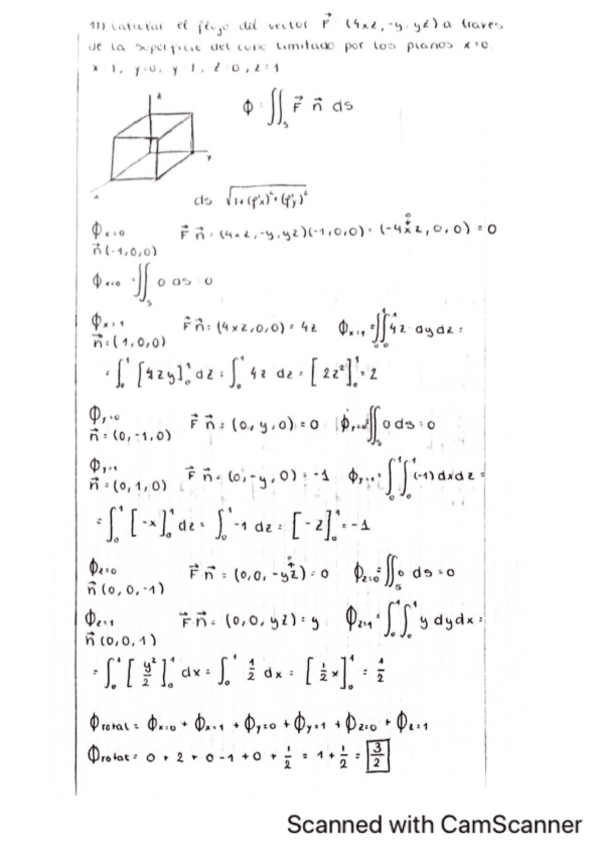 11) Calcular el flujo del vector F⃗ (4xz, -y, yz) a traves
de la superficie del cubo limitado por los planos x=0,
x=1, y=0, y=1, z=0, z=1
Φ = ∬_S F⃗ n⃗ ds
y
ds √(1+(f'x)²+(f'y)²)
Φx=0 F⃗ n⃗ = (4xz, -y, yz)(-1,0,0) = (-4xz, 0, 0) = 0
n⃗(-1,0,0)
Φx=0 = ∬_S 0 ds = 0
Φx=1 F⃗ n⃗ = (4xz,0,0) = 4z Φx=1 = ∫₀¹∫₀¹ 4z dydz =
n⃗ = (1,0,0)
= ∫₀¹ [4zy]₀¹ dz = ∫₀¹ 4z dz = [2z²]₀¹ = 2
Φy=0 F⃗ n⃗ = (0, y, 0) = 0 Φy=0 = ∬_S 0 ds = 0
n⃗ = (0,-1,0)
Φy=1 F⃗ n⃗ = (0, -y, 0) = -1 Φy=1 = ∫₀¹∫₀¹ (-1) dxdz =
n⃗ = (0,1,0)
= ∫₀¹ [-x]₀¹ dz = ∫₀¹ -1 dz = [-z]₀¹ = -1
Φz=0 F⃗ n⃗ = (0,0,-yz) = 0 Φz=0 = ∬_S 0 ds = 0
n⃗ (0,0,-1)
Φz=1 F⃗ n⃗ = (0,0, yz) = y Φz=1 = ∫₀¹∫₀¹ y dydx =
n⃗ (0,0,1)
= ∫₀¹ [y²/2]₀¹ dx = ∫₀¹ 1/2 dx = [1/2 x]₀¹ = 1/2
Φtotal = Φx=0 + Φx=1 + Φy=0 + Φy=1 + Φz=0 + Φz=1
Φtotal = 0 + 2 + 0 - 1 + 0 + 1/2 = 1 + 1/2 = 3/2
Scanned with CamScanner